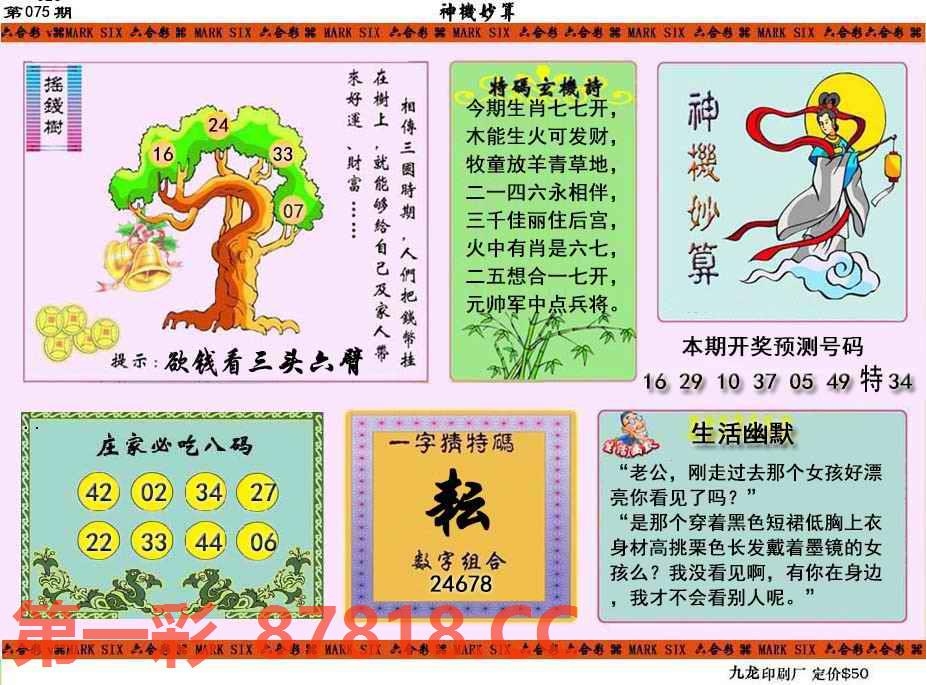 第075期
神機妙算
六合彩 MARK SIX 六合彩 MARK SIX 六合彩 MARK SIX 六合彩 MARK SIX 六合彩 六合彩 MARK SIX 六合彩 MARK SIX 六合彩六合彩
搖錢樹
相傳三國時期，人們把錢幣挂
在樹上，就能够给自己及家人帶
來好運、財富……
24
16
33
07
提示：欲钱看三头六臂
特碼玄機詩
今期生肖七七开，
木能生火可发财，
牧童放羊青草地，
二一四六永相伴，
三千佳丽住后宫，
火中有肖是六七，
二五想合一七开，
元帅军中点兵将。
神機妙算
本期开奖预测号码
16 29 10 37 05 49 特 34
庄家必吃八码
42 02 34 27
22 33 44 06
一字猜特碼
耘
数字组合
24678
生活幽默
生活幽默
“老公，刚走过去那个女孩好漂
亮你看见了吗？”
“是那个穿着黑色短裙低胸上衣
身材高挑栗色长发戴着墨镜的女
孩么？我没看见啊，有你在身边
，我才不会看别人呢。”
第一彩 87818.CC
六合彩 MARK SIX 六合彩 MARK SIX 六合彩 MARK SIX 六合彩 MARK SIX 六合彩六合彩 MARK SIX 六合彩 MARK SIX 六合彩六合彩
九龙印刷厂 定价$50